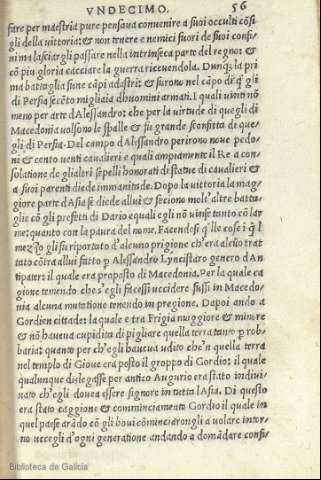 VNDECIMO. 56
fare per maestria pure pensaua conuenire a suoi occulti cõsi
gli della vittoria: & non tenere e nemici fuori de suoi confi
ni ma lasciargli passare nella intrinseca parte del regno: &
cõ piu gloria cacciare la guerra riceuendola. Dunq; la pri
ma battaglia fu ne cãpi adastri: & furono nel cãpo di q̃ gli
di Persia secẽto migliaia dhuomini armati. I quali vinti nõ
meno per arte d'Alessandro che per la virtude di quegli di
Macedonia volsono le spalle & fu grande sconfitta di que
gli di Persia. Del campo d'Alessandro perirono noue pedo
ni & cento venti caualieri e quali ampiamente il Re a con
solatione de glialtri sepelli honorati di statue di caualieri &
a suoi parenti diede immunitade. Dopo la vittoria la mag
giore parte d'Asia se diede allui & feciono molt'altre batta
glie cõ gli prefetti di Dario e quali egli nõ vinse tanto cõ lar
me quanto con la paura del nome. Facendosi q̃ lle cose i q̃l
mezzo gli fu riportato d'alcuno prigione ch'era alcũo trat
tato cõtra allui fatto p Alessandro Lyncistaro genero d'An
tipater: il quale era proposto di Macedonia. Per la quale ca
gione temendo che s'egli facessi uccidere fussi in Macedo
nia alcuna mutatione tenendo in pregione. Dapoi ando a
Gordien cittade: la quale e tra Frigia maggiore & minore
& nõ haueua cupidita di pigliare quella terra tanto p rob-
baria: quanto per ch'egli haueua udito che'n quella terra
nel templo di Gioue era posto il groppo di Gordio: il quale
qualunque dislegasse per antico Augurio era stato indiui-
nato ch'egli douea essere signore in tutta l'Asia. Di questo
era stato caggione & comminciamento Gordio il quale in
quel paese arãdo cõ gli boui cõminciorongli a volare intor-
no uccegli d'ogni generatione andando a domãdare consi/
Biblioteca de Galicia